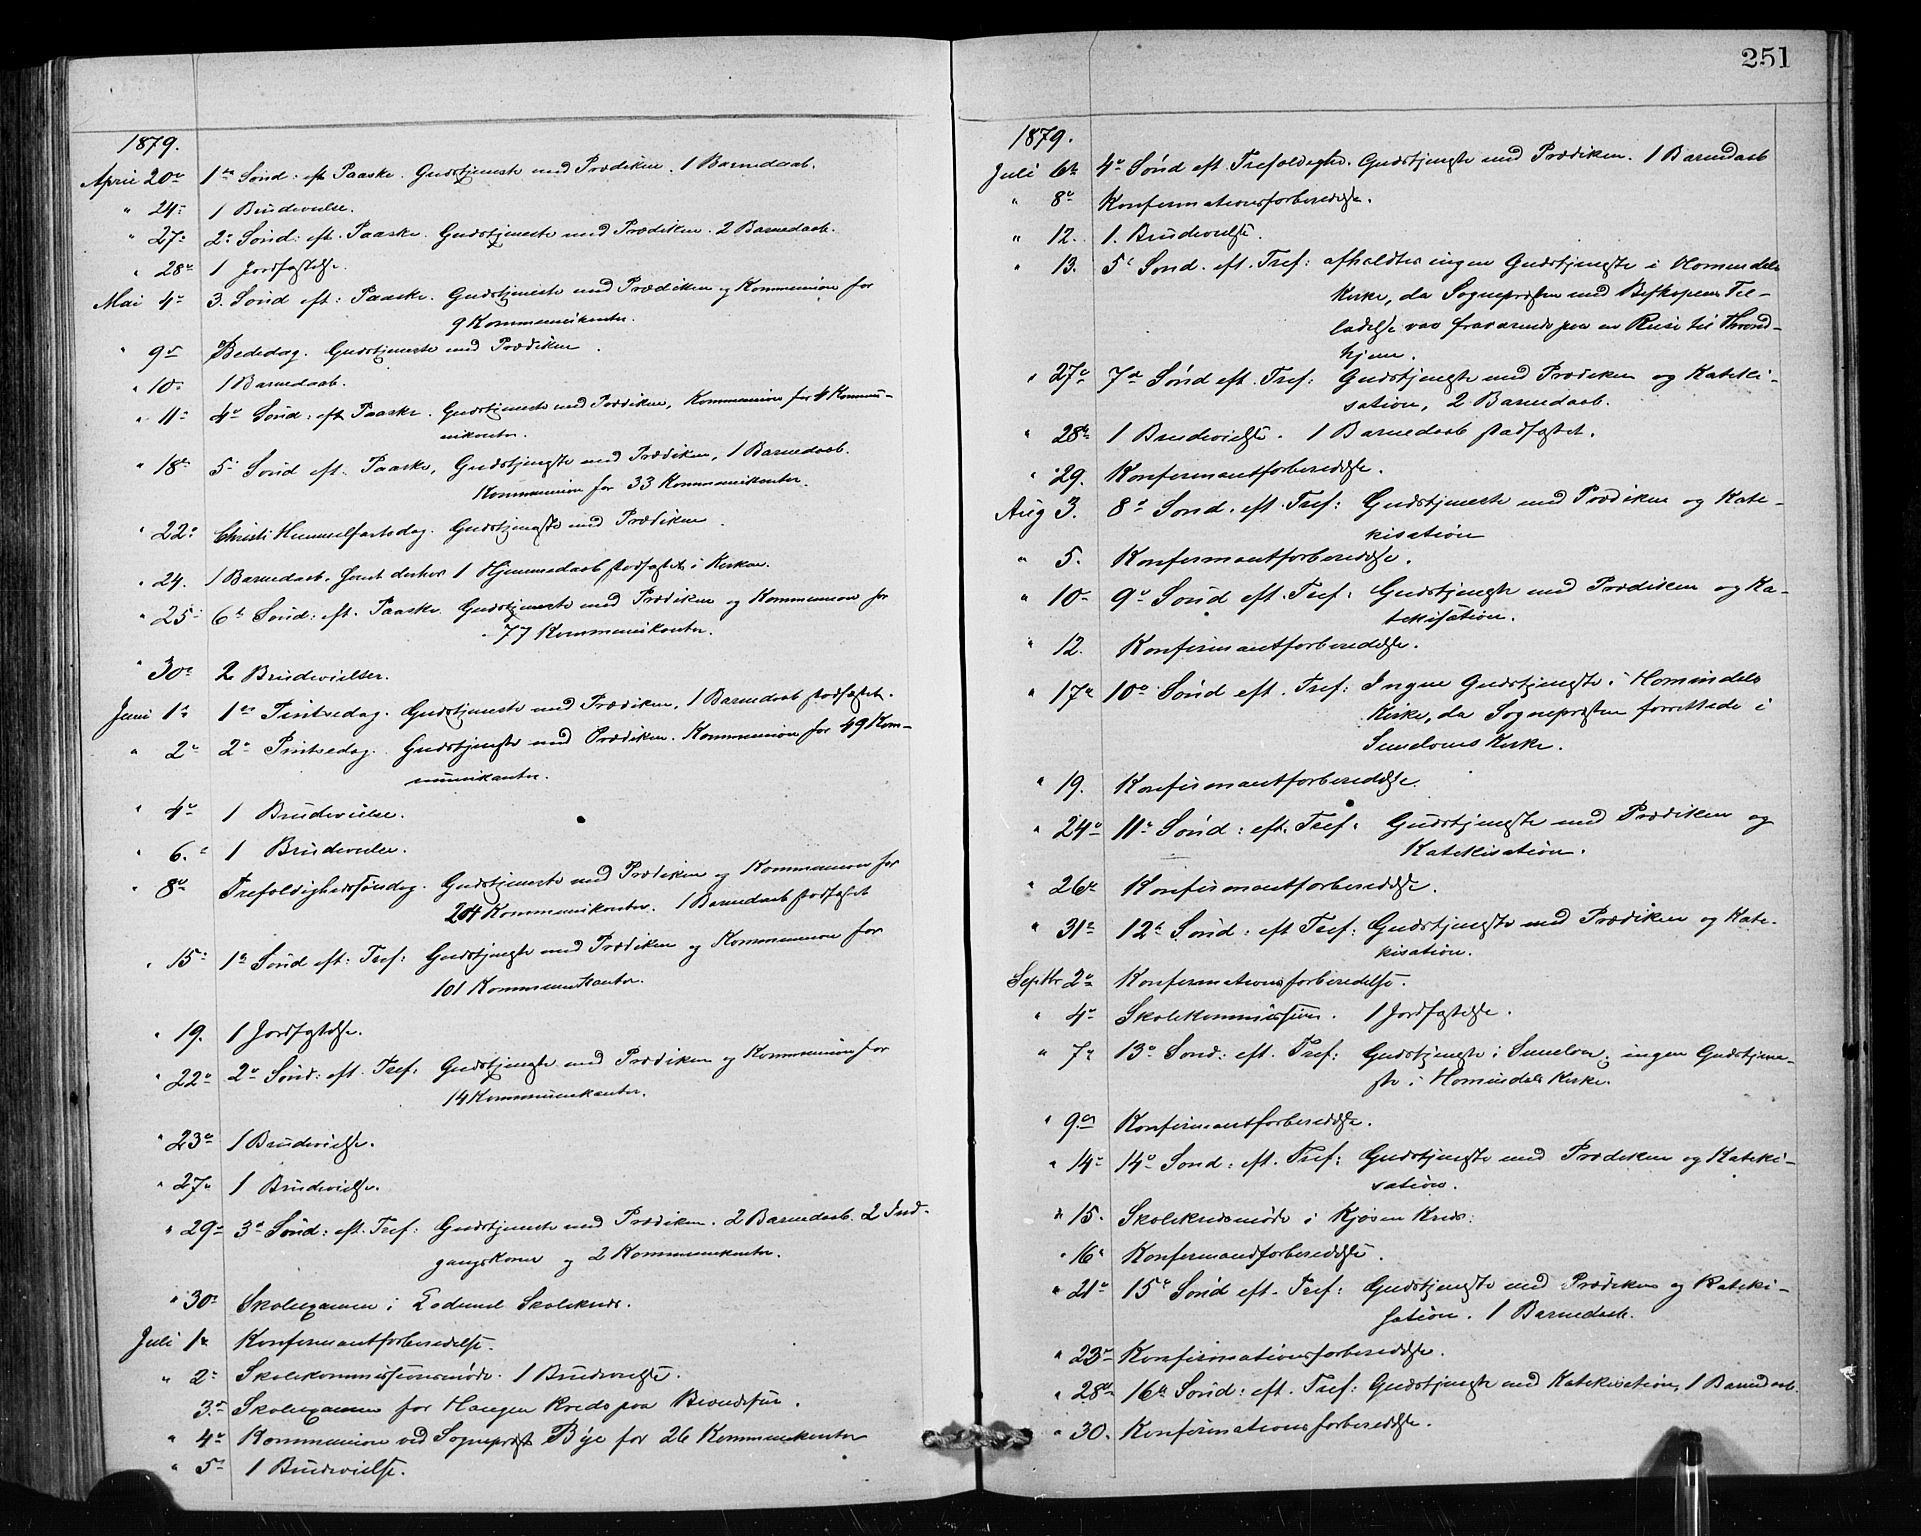 1879.
April 20de 1ste Sønd: eft. Paaske. Gudstjeneste med Prædiken. 1 Barnedaab.
" 24: 1 Brudevielse.
" 27: 2: Sønd: eft. Paaske. Gudstjeneste med Prædiken. 2 Barnedaab.
" 28de 1 Jordfæstelse.
Mai 4de 3. Sønd eft: Paaske. Gudstjeneste med Prædiken og Kommunion for
9 Kommunikanter.
" 9de Bededag. Gudstjeneste med Prædiken.
" 10: 1 Barnedaab.
" 11: 4de Sønd: eft Paaske. Gudstjeneste med Prædiken, Kommunion for 4 Kommu-
nikanter.
" 18de 5: Sønd eft. Paaske, Gudstjeneste med Prædiken, 1 Barnedaab.
Kommunion for 33 Kommunikanter.
" 22: Christi Himmelfartsdag. Gudstjeneste med Prædiken.
" 24. 1 Barnedaab. 1 Hjemmedaab stadfæstet i Kirken.
" 25: 6te Sønd: eft. Paaske. Gudstjeneste med Prædiken og Kommunion for
77 Kommunikanter.
" 30de 2 Brudevielser.
Juni 1ste 1ste Pintsedag. Gudstjeneste med Prædiken, 1 Barnedaab stadfæstet.
" 2de 2de Pintsedag. Gudstjeneste med Prædiken. Kommunion for 49 Kom-
munikanter.
" 4de 1 Brudevielse.
" 6. 1 Brudevielse.
" 8de Trefoldighedssøndag. Gudstjeneste med Prædiken og Kommunion for
204 Kommunikanter. 1 Barnedaab stadfæstet
" 15: 1ste Sønd eft: Tref: Gudstjeneste med Prædiken og Kommunion for
101 Kommunikanter.
" 19. 1 Jordfæstelse.
" 22de 2de Sønd: eft. Tref: Gudstjeneste med Prædiken og Kommunion for
14 Kommunikanter.
" 23de 1 Brudevielse.
" 27de 1 Brudevielse.
" 29de 3de Sønd: eft. Tref: Gudstjeneste med Prædiken. 2 Barnedaab. 2 Ind-
gangskoner og 2 Kommunikanter.
" 30de Skoleexamen i Skolekreds.
Juli 1ste Konfirmantforberedelse.
" 2: Skolekommissionsmøde. 1 Brudevielse.
3de Skoleexamen for Haugen Kreds paa
" 4de Kommunion ved Sognepræst Bye for 26 Kommunikanter
" 5te 1 Brudevielse.
251
1879.
Juli 6te 4de Sønd eft. Trefoldighed. Gudstjeneste med Prædiken. 1 Barnedaab
" 8de Konfirmationsforberedelse.
" 12. 1. Brudevielse.
" 13. 5te Sønd. eft. Tref: afholdtes ingen Gudstjeneste i Homindals
Kirke, da Sognepræsten med Biskopens Til-
ladelse var fraværende paa en Reise til Thrond-
hjem.
" 27de 7de Sønd eft. Tref: Gudstjeneste med Prædiken og Kateki-
sation, 2 Barnedaab.
" 28de 1 Brudevielse. 1 Barnedaab stadfæstet.
" 29. Konfirmantforberedelse.
Aug 3. 8de Sønd. eft. Tref: Gudstjeneste med Prædiken og Kate-
kisation
" 5. Konfirmantforberedelse.
" 10. 9de Sønd eft. Tref: Gudstjeneste med Prædiken og Ka-
tekisation.
" 12. Konfirmantforberedelse.
" 17de 10de Sønd eft. Tref: Ingen Gudstjeneste i Homindals
Kirke, da Sognepræsten forrettede i
Sunelvens Kirke.
" 19. Konfirmantforberedelse.
" 24de 11te Sønd: eft. Tref: Gudstjeneste med Prædiken og
Katekisation.
" 26de Konfirmantforberedelse.
" 31te 12te Sønd: eft Tref: Gudstjeneste med Prædiken og Kate-
kisation.
Septbr 2de Konfirmationsforberedelse.
" 4de Skolekommission. 1 Jordfæstelse.
" 7de 13de Sønd: eft. Tref: Gudstjeneste i Sunelven; ingen Gudstjene-
ste i Homindals Kirke.
" 9de Konfirmantforberedelse.
" 14de 14de Sønd: eft. Tref: Gudstjeneste med Prædiken og Kateki-
sation.
" 15. Skolekredsmøde i Kjøsen Kreds:
" 16de Konfirmandforberedelse.
" 21de 15de Sønd eft. Tref: Gudstjeneste med Prædiken og Kateki-
sation. 1 Barnedaab.
" 23de Konfirmationsforberedelse.
" 28de 16de Sønd: eft. Tref: Gudstjeneste med Katekisation, 1 Barnedaab.
" 30. Konfirmationsforberedelse.